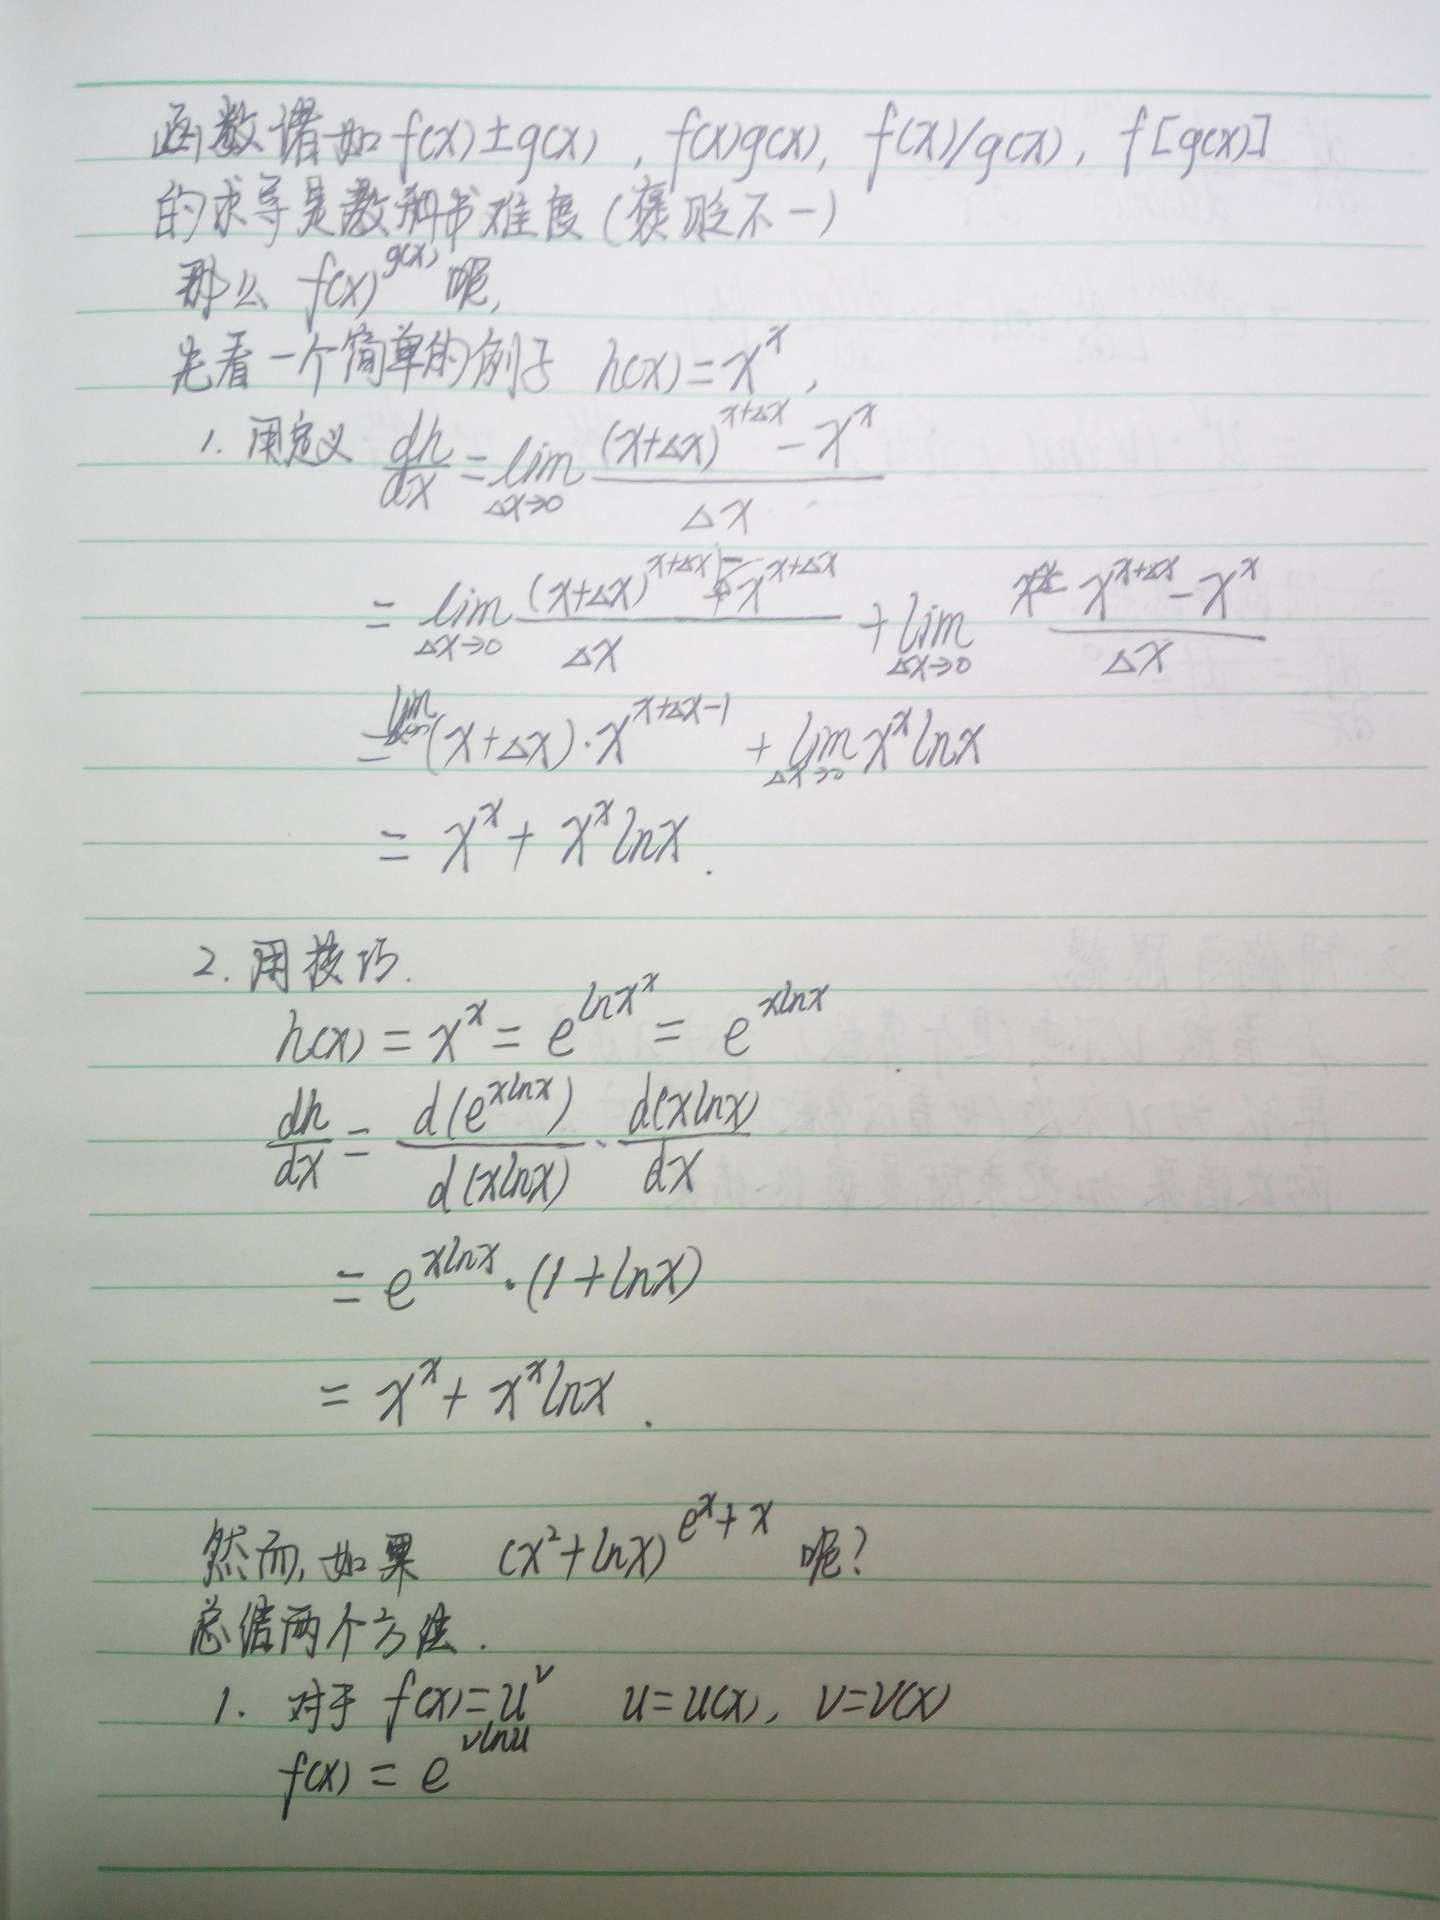 函数诸如 f(x)±g(x), f(x)g(x), f(x)/g(x), f[g(x)]
的求导是教科书难度(褒贬不一)
那么 f(x)^{g(x)} 呢,
先看一个简单的例子 h(x)=x^x,
1. 用定义 dh/dx = lim_{Δx→0} ((x+Δx)^{x+Δx} - x^x)/Δx
= lim_{Δx→0} ((x+Δx)^{x+Δx} - x^{x+Δx})/Δx + lim_{Δx→0} (x^{x+Δx} - x^x)/Δx
= lim_{Δx→0} (x+Δx)·x^{x+Δx-1} + lim_{Δx→0} x^x lnx
= x^x + x^x lnx.
2. 用技巧.
h(x) = x^x = e^{lnx^x} = e^{xlnx}
dh/dx = d(e^{xlnx})/d(xlnx) · d(xlnx)/dx
= e^{xlnx}·(1+lnx)
= x^x + x^x lnx.
然而,如果 (x²+lnx)^{e^x+x} 呢?
总结两个方法.
1. 对于 f(x)=u^v u=u(x), v=v(x)
f(x) = e^{vlnu}